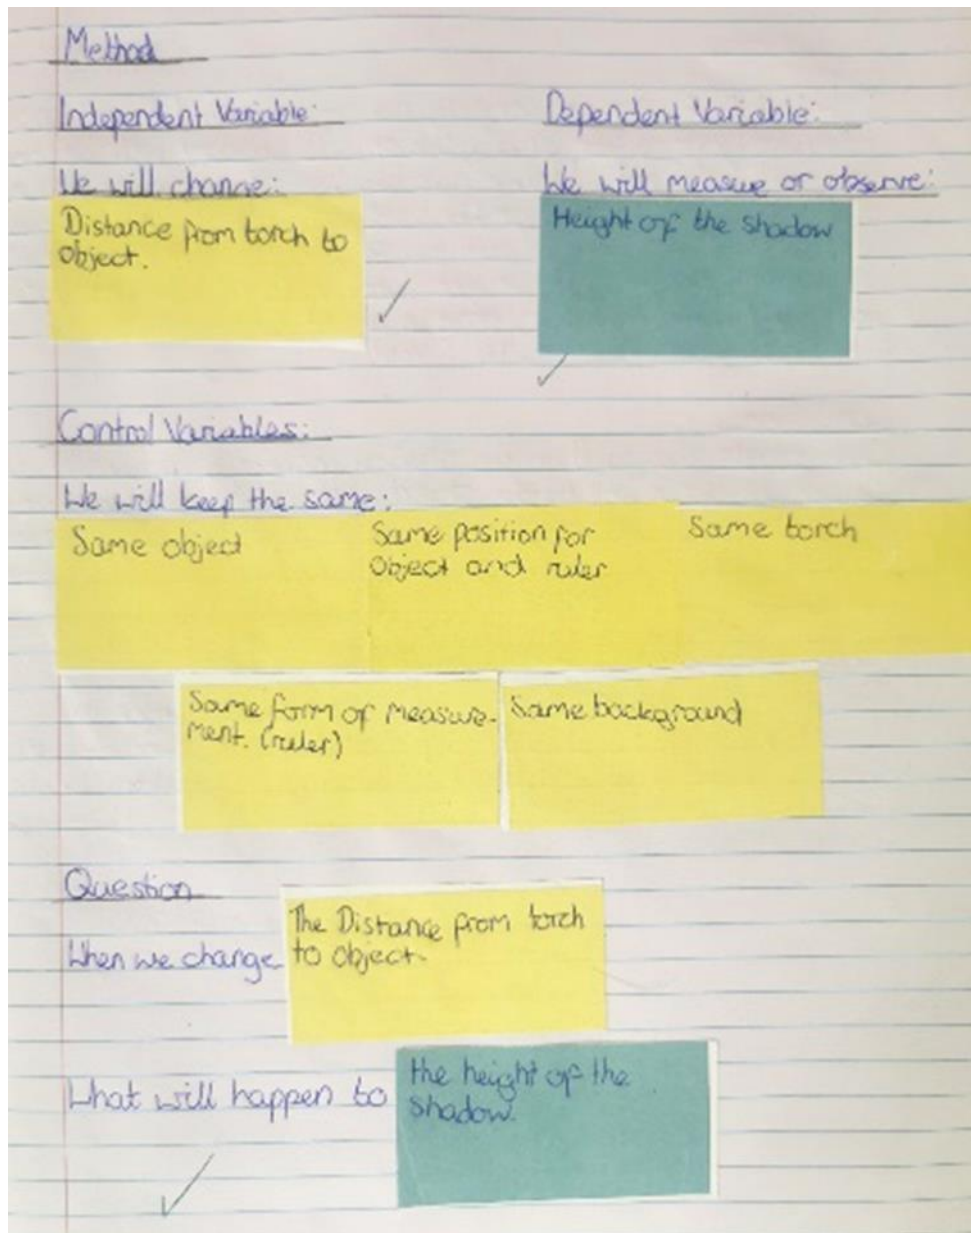 Method
Independent Variable:
Dependent Variable:
We will change:
We will measure or observe:
Distance from torch to
object.
Height of the shadow
Control Variables:
We will keep the same:
Same object
Same position for
object and ruler
Same torch
Same form of measure-
ment. (ruler)
Same background
Question
When we change
The Distance from torch
to object.
What will happen to
the height of the
shadow.